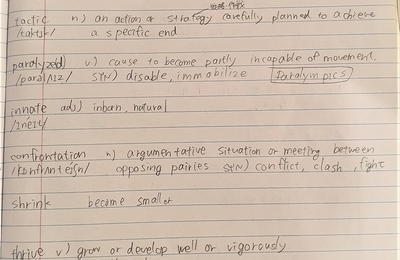 tactic n) an action or strategy carefully planned to achieve
/taktik/ a specific end
paralyze(d) v.) cause to become partly incapable of movement.
/paralʌiz/ SYN) disable, immobilize Paralympics
innate adj) inborn, natural
/inéit/
confrontation n) argumentative situation or meeting between
/kɒnfrʌntéiʃn/ opposing pairies SYN) conflict, clash, fight
shrink become smaller
thrive v) grow or develop well or vigorously